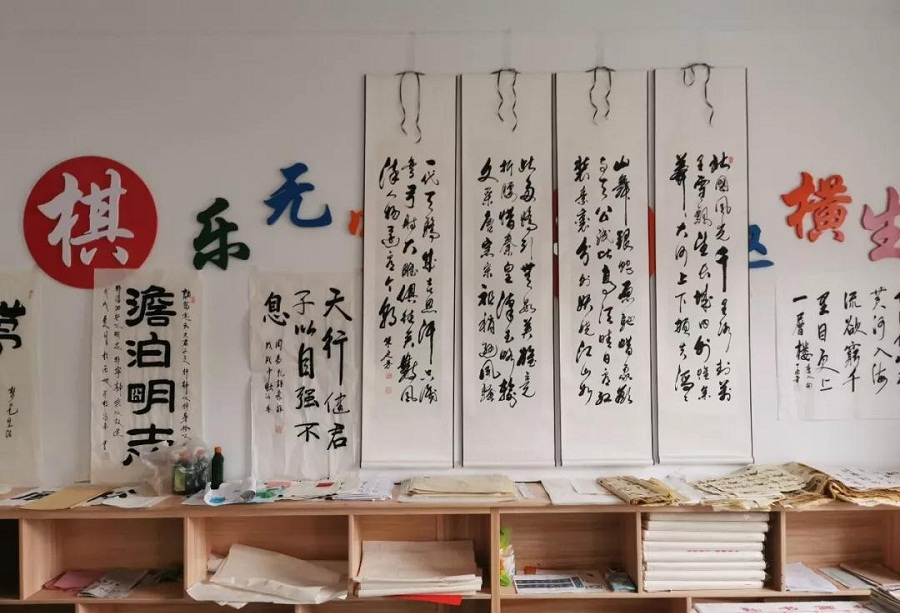 棋
乐
无
横
生
黄河入海
流欲穷千
里目更上
一层楼
北国风光千里冰封万
里雪飘望长城内外惟余
莽大河上下顿失滔
山舞银蛇原驰蜡象欲
与天公试比高须晴日看红
装素裹分外妖娆江山如
此多娇引无数英雄竞
折腰惜秦皇汉武略输
文采唐宗宋祖稍逊风骚
一代天骄成吉思汗只识
弯弓射大雕俱往矣数风
流人物还看今朝
天行健君
子以自强不
息
澹泊明志